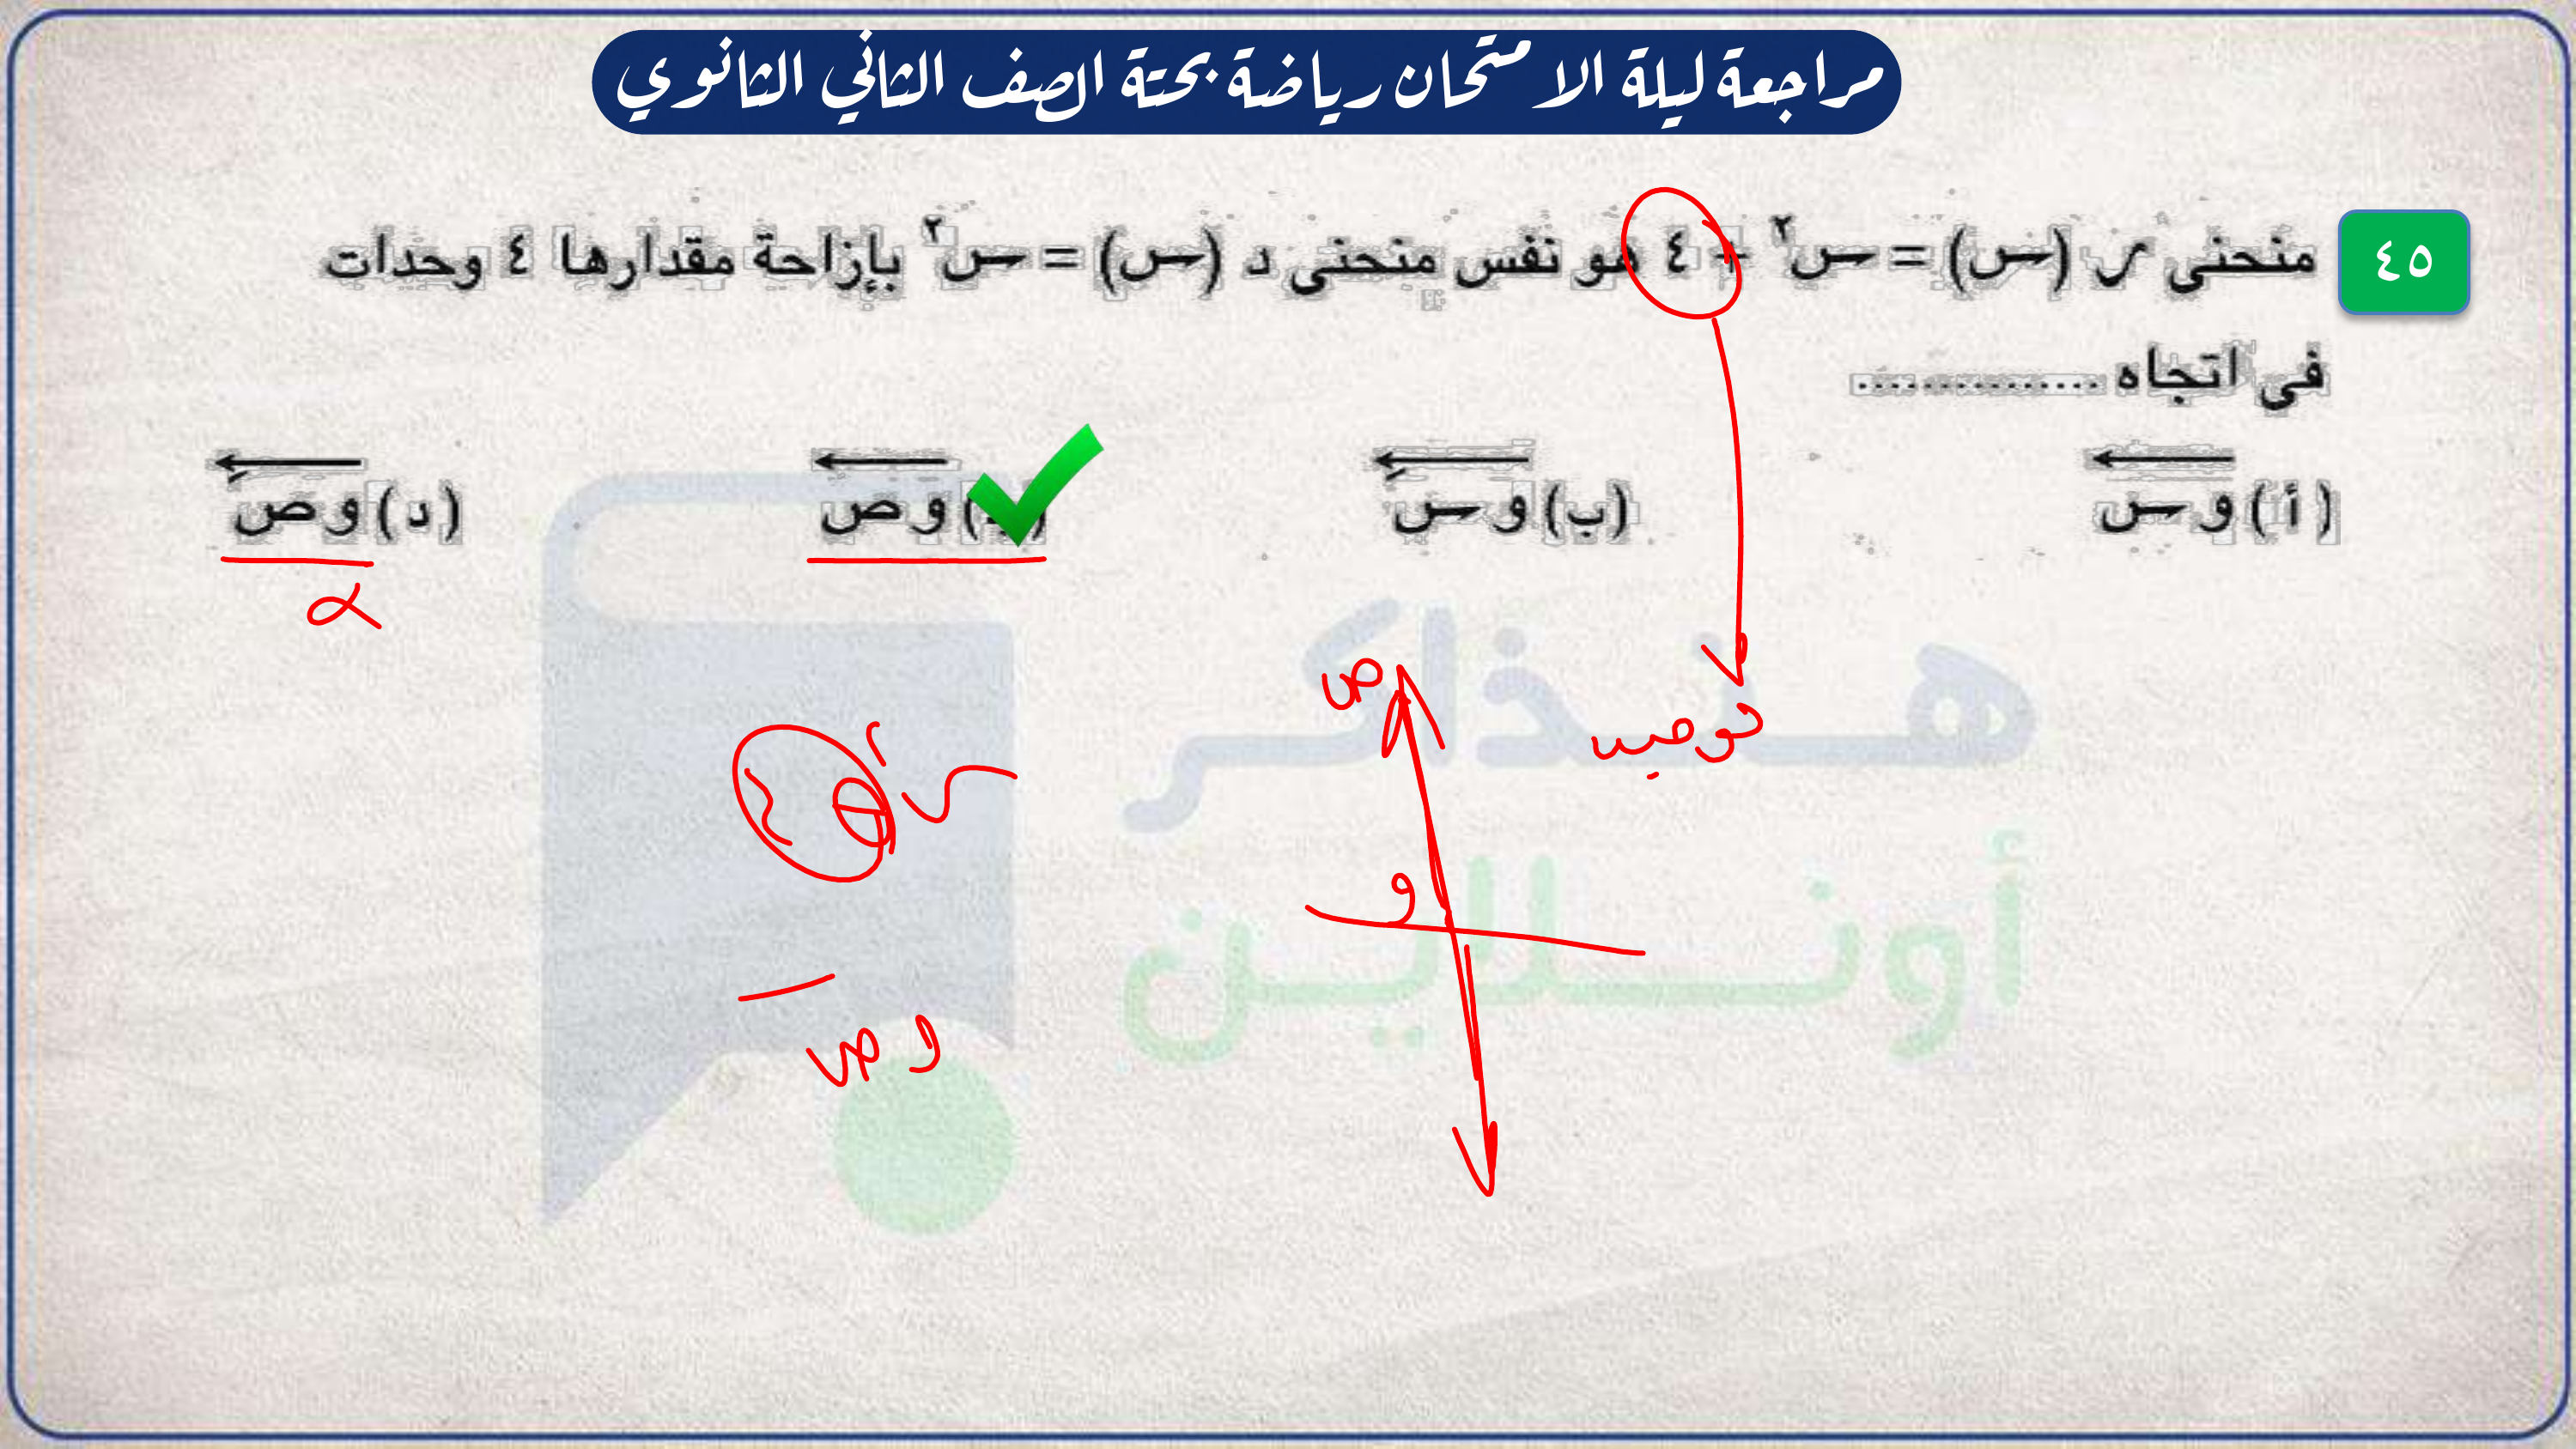 مراجعة ليلة الامتحان رياضة بحتة الصف الثاني الثانوي
٤٥
منحنى ر (س) = س٢ + ٤ هو نفس منحنى د (س) = س٢ بإزاحة مقدارها ٤ وحدات
فى اتجاه ...............
(أ) و س
(ب) و سَ
و ص
(د) و صَ
ص
و
و ص
هنذاكر
أونلاين